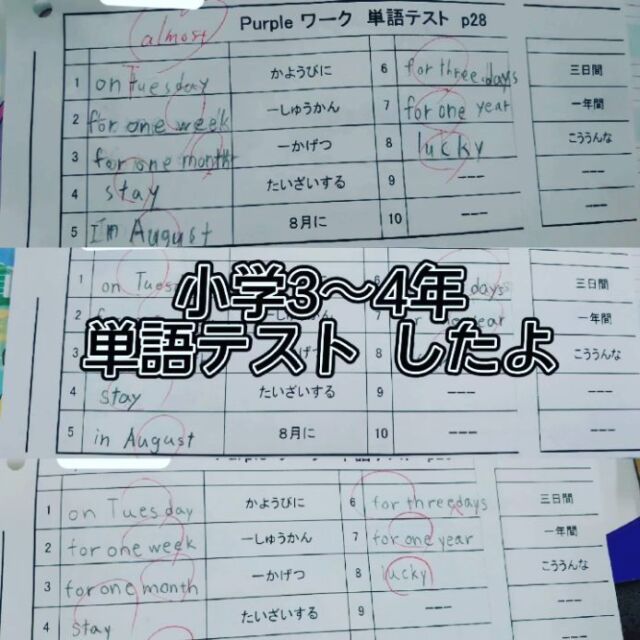 almost
Purple ワーク 単語テスト p28
1 on Tuesday かようびに 6 for three days 三日間
2 for one week 一しゅうかん 7 for one year 一年間
3 for one month 一かげつ 8 lucky こううんな
4 stay たいざいする 9 ---- ----
5 I'm August 8月に 10 ---- ----
小学3～4年
単語テスト したよ
1 on 三日間
2 一年間
3 8 こううんな
4 stay たいざいする 9 ---- ----
5 in August 8月に 10 ---- ----
1 on Tuesday かようびに 6 for threedays 三日間
2 for one week 一しゅうかん 7 for one year 一年間
3 for one month 一かげつ 8 lucky こううんな
4 stay たいざいする 9 ---- ----